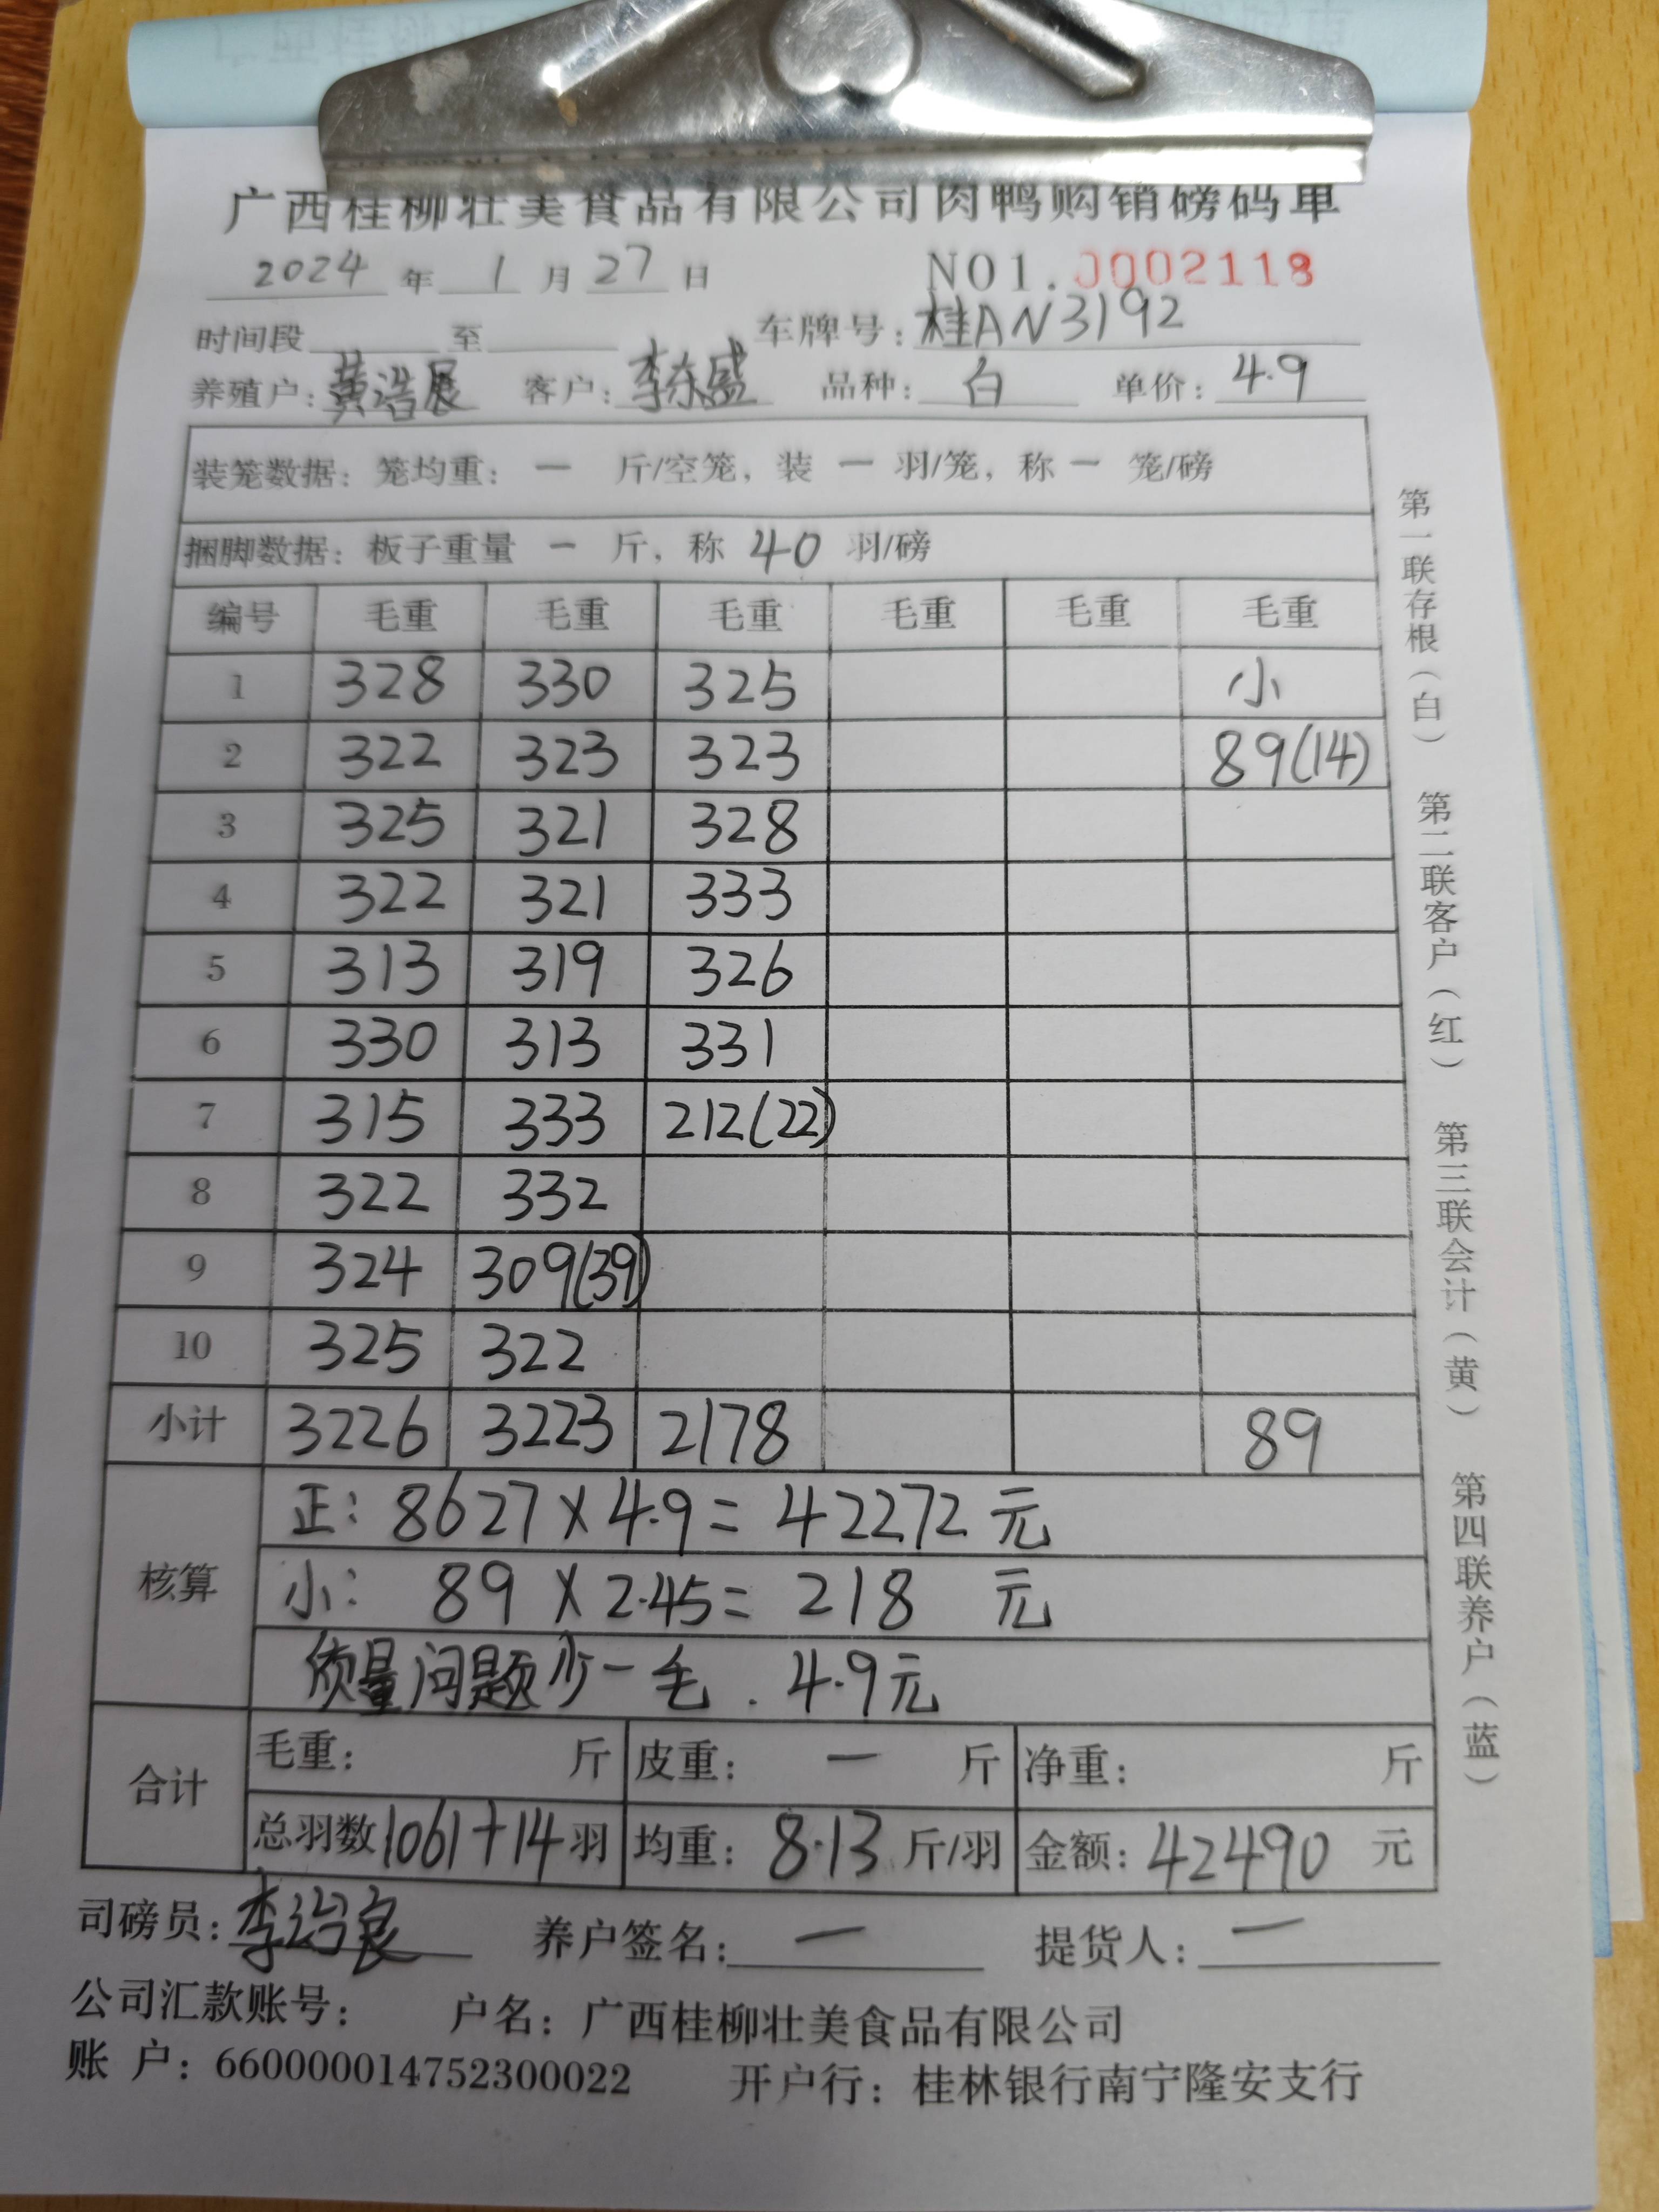 广西桂柳壮美食品有限公司肉鸭购销磅码单
2024 年 1 月 27 日 NO1.0002118
时间段 至 车牌号：桂AN3192
养殖户：黄浩展 客户：李东盛 品种：白 单价：4.9
装笼数据：笼均重：一 斤/空笼，装 一 羽/笼，称 一 笼/磅
捆脚数据：板子重量 一 斤，称 40 羽/磅
编号 毛重 毛重 毛重 毛重 毛重 毛重
1 328 330 325 小
2 322 323 323 89(14)
3 325 321 328
4 322 321 333
5 313 319 326
6 330 313 331
7 315 333 212(22)
8 322 332
9 324 309(39)
10 325 322
小计 3226 3223 2178 89
核算
正：8627×4.9=42272元
小：89×2.45=218 元
质量问题少一毛．4.9元
合计
毛重： 斤 皮重：一 斤 净重： 斤
总羽数1061+14羽 均重：8.13斤/羽 金额：42490 元
司磅员： 养户签名：一 提货人：一
公司汇款账号： 户名：广西桂柳壮美食品有限公司
账 户：660000014752300022 开户行：桂林银行南宁隆安支行
第一联存根（白） 第二联客户（红） 第三联会计（黄） 第四联养户（蓝）